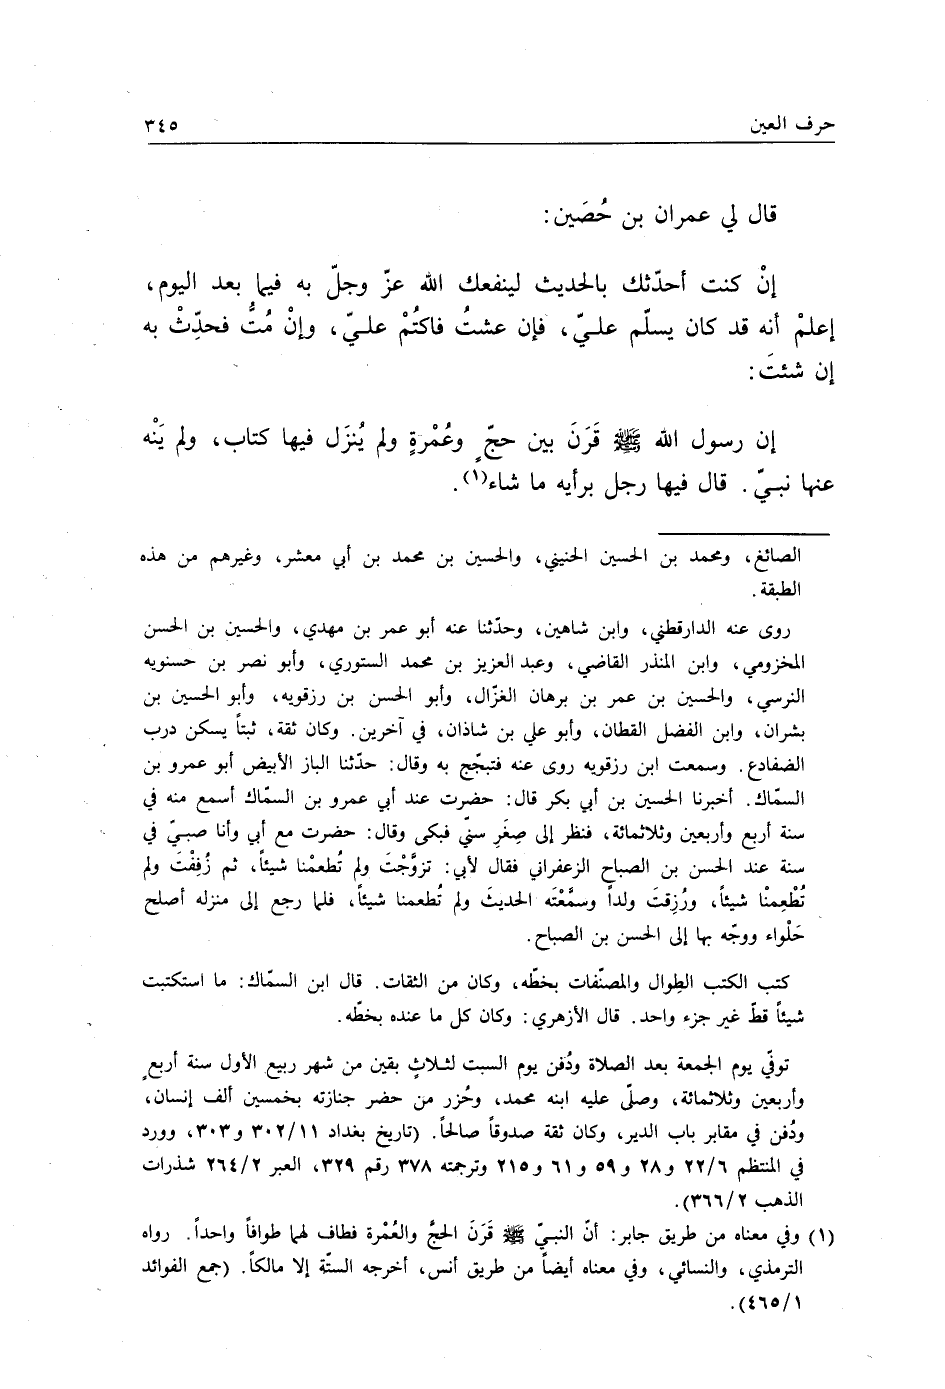 حرف العين ٣٤٥
قال لي عمران بن حُصَين:
إنْ كنت أحدّثك بالحديث لينفعك الله عزّ وجلّ به فيما بعد اليوم،
إعلمْ أنه قد كان يسلّم عليّ، فإن عشتُ فاكتُمْ عليّ، وإنْ مُتُّ فحدِّثْ به
إن شئتَ:
إن رسول الله ﷺ قَرَنَ بين حجّ وعُمْرةٍ ولم يُنزَل فيها كتاب، ولم يَنْه
عنها نبيّ. قال فيها رجل برأيه ما شاء(١).
الصائغ، ومحمد بن الحسين الحنيني، والحسين بن محمد بن أبي معشر، وغيرهم من هذه
الطبقة.
روى عنه الدارقطني، وابن شاهين، وحدّثنا عنه أبو عمر بن مهدي، والحسين بن الحسن
المخزومي، وابن المنذر القاضي، وعبد العزيز بن محمد الستوري، وأبو نصر بن حسنويه
النرسي، والحسين بن عمر بن برهان الغزّال، وأبو الحسن بن رزقويه، وأبو الحسين بن
بشران، وابن الفضل القطان، وأبو علي بن شاذان، في آخرين. وكان ثقة، ثبتاً يسكن درب
الضفادع. وسمعت ابن رزقويه روى عنه فتبجّج به وقال: حدّثنا الباز الأبيض أبو عمرو بن
السمّاك. أخبرنا الحسين بن أبي بكر قال: حضرت عند أبي عمرو بن السمّاك أسمع منه في
سنة أربع وأربعين وثلاثمائة، فنظر إلى صِغَر سنّي فبكى وقال: حضرت مع أبي وأنا صبيّ في
سنة عند الحسن بن الصباح الزعفراني فقال لأبي: تزوَّجْتَ ولم تُطعمْنا شيئاً، ثم زُفِفْتَ ولم
تُطْعِمْنا شيئاً، ورُزِقتَ ولداً وسمَّعْتَه الحديثَ ولم تُطعمنا شيئاً، فلما رجع إلى منزله أصلح
حَلْواء ووجّه بها إلى الحسن بن الصباح.
كتب الكتب الطِوال والمصنّفات بخطّه، وكان من الثقات. قال ابن السمّاك: ما استكتبت
شيئاً قطّ غير جزء واحد. قال الأزهري: وكان كل ما عنده بخطّه.
توفّي يوم الجمعة بعد الصلاة ودُفن يوم السبت لثلاثٍ بقين من شهر ربيع الأول سنة أربعٍ
وأربعين وثلاثمائة، وصلّى عليه ابنه محمد، وحُزر من حضر جنازته بخمسين ألف إنسان،
ودُفن في مقابر باب الدير، وكان ثقة صدوقاً صالحاً. (تاريخ بغداد ٣٠٢/١١ و٣٠٣، وورد
في المنتظم ٢٢/٦ و٢٨ و٥٩ و٦١ و٢١٥ وترجمته ٣٧٨ رقم ٣٢٩، العبر ٢٦٤/٢ شذرات
الذهب ٣٦٦/٢).
(١) وفي معناه من طريق جابر: أنّ النبيّ ﷺ قَرَنَ الحجَّ والعُمْرة فطاف لهما طوافاً واحداً. رواه
الترمذي، والنسائي، وفي معناه أيضاً من طريق أنس، أخرجه الستّة إلا مالكاً. (جمع الفوائد
٤٦٥/١).